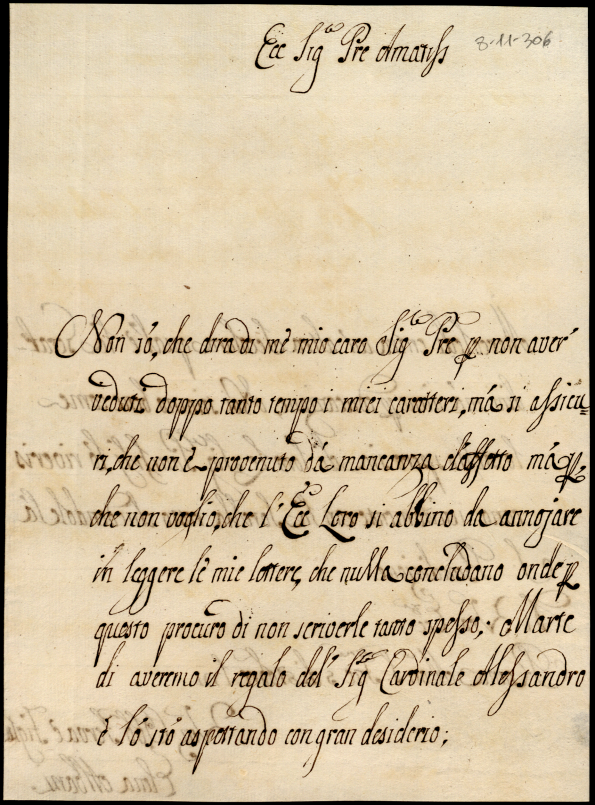 Ecc Sig.re Pre Amatiss
8-11-306
Non só, che dira di mè mio caro Sig.re Pre p non aver
veduti doppo tanto tempo i miei caratteri, má si assicu=
ri, che non è provenuto dá mancanza d'affetto má p
che non voglio, che l'Ecc.e Loro si abbino da annojare
in leggere le mie lettere, che nulla concludano onde p
questo procuro di non scriverle tanto spesso. Marte
di averemo il regalo del Sig.re Cardinale Alessandro
è ló stó aspettando con gran desiderio;